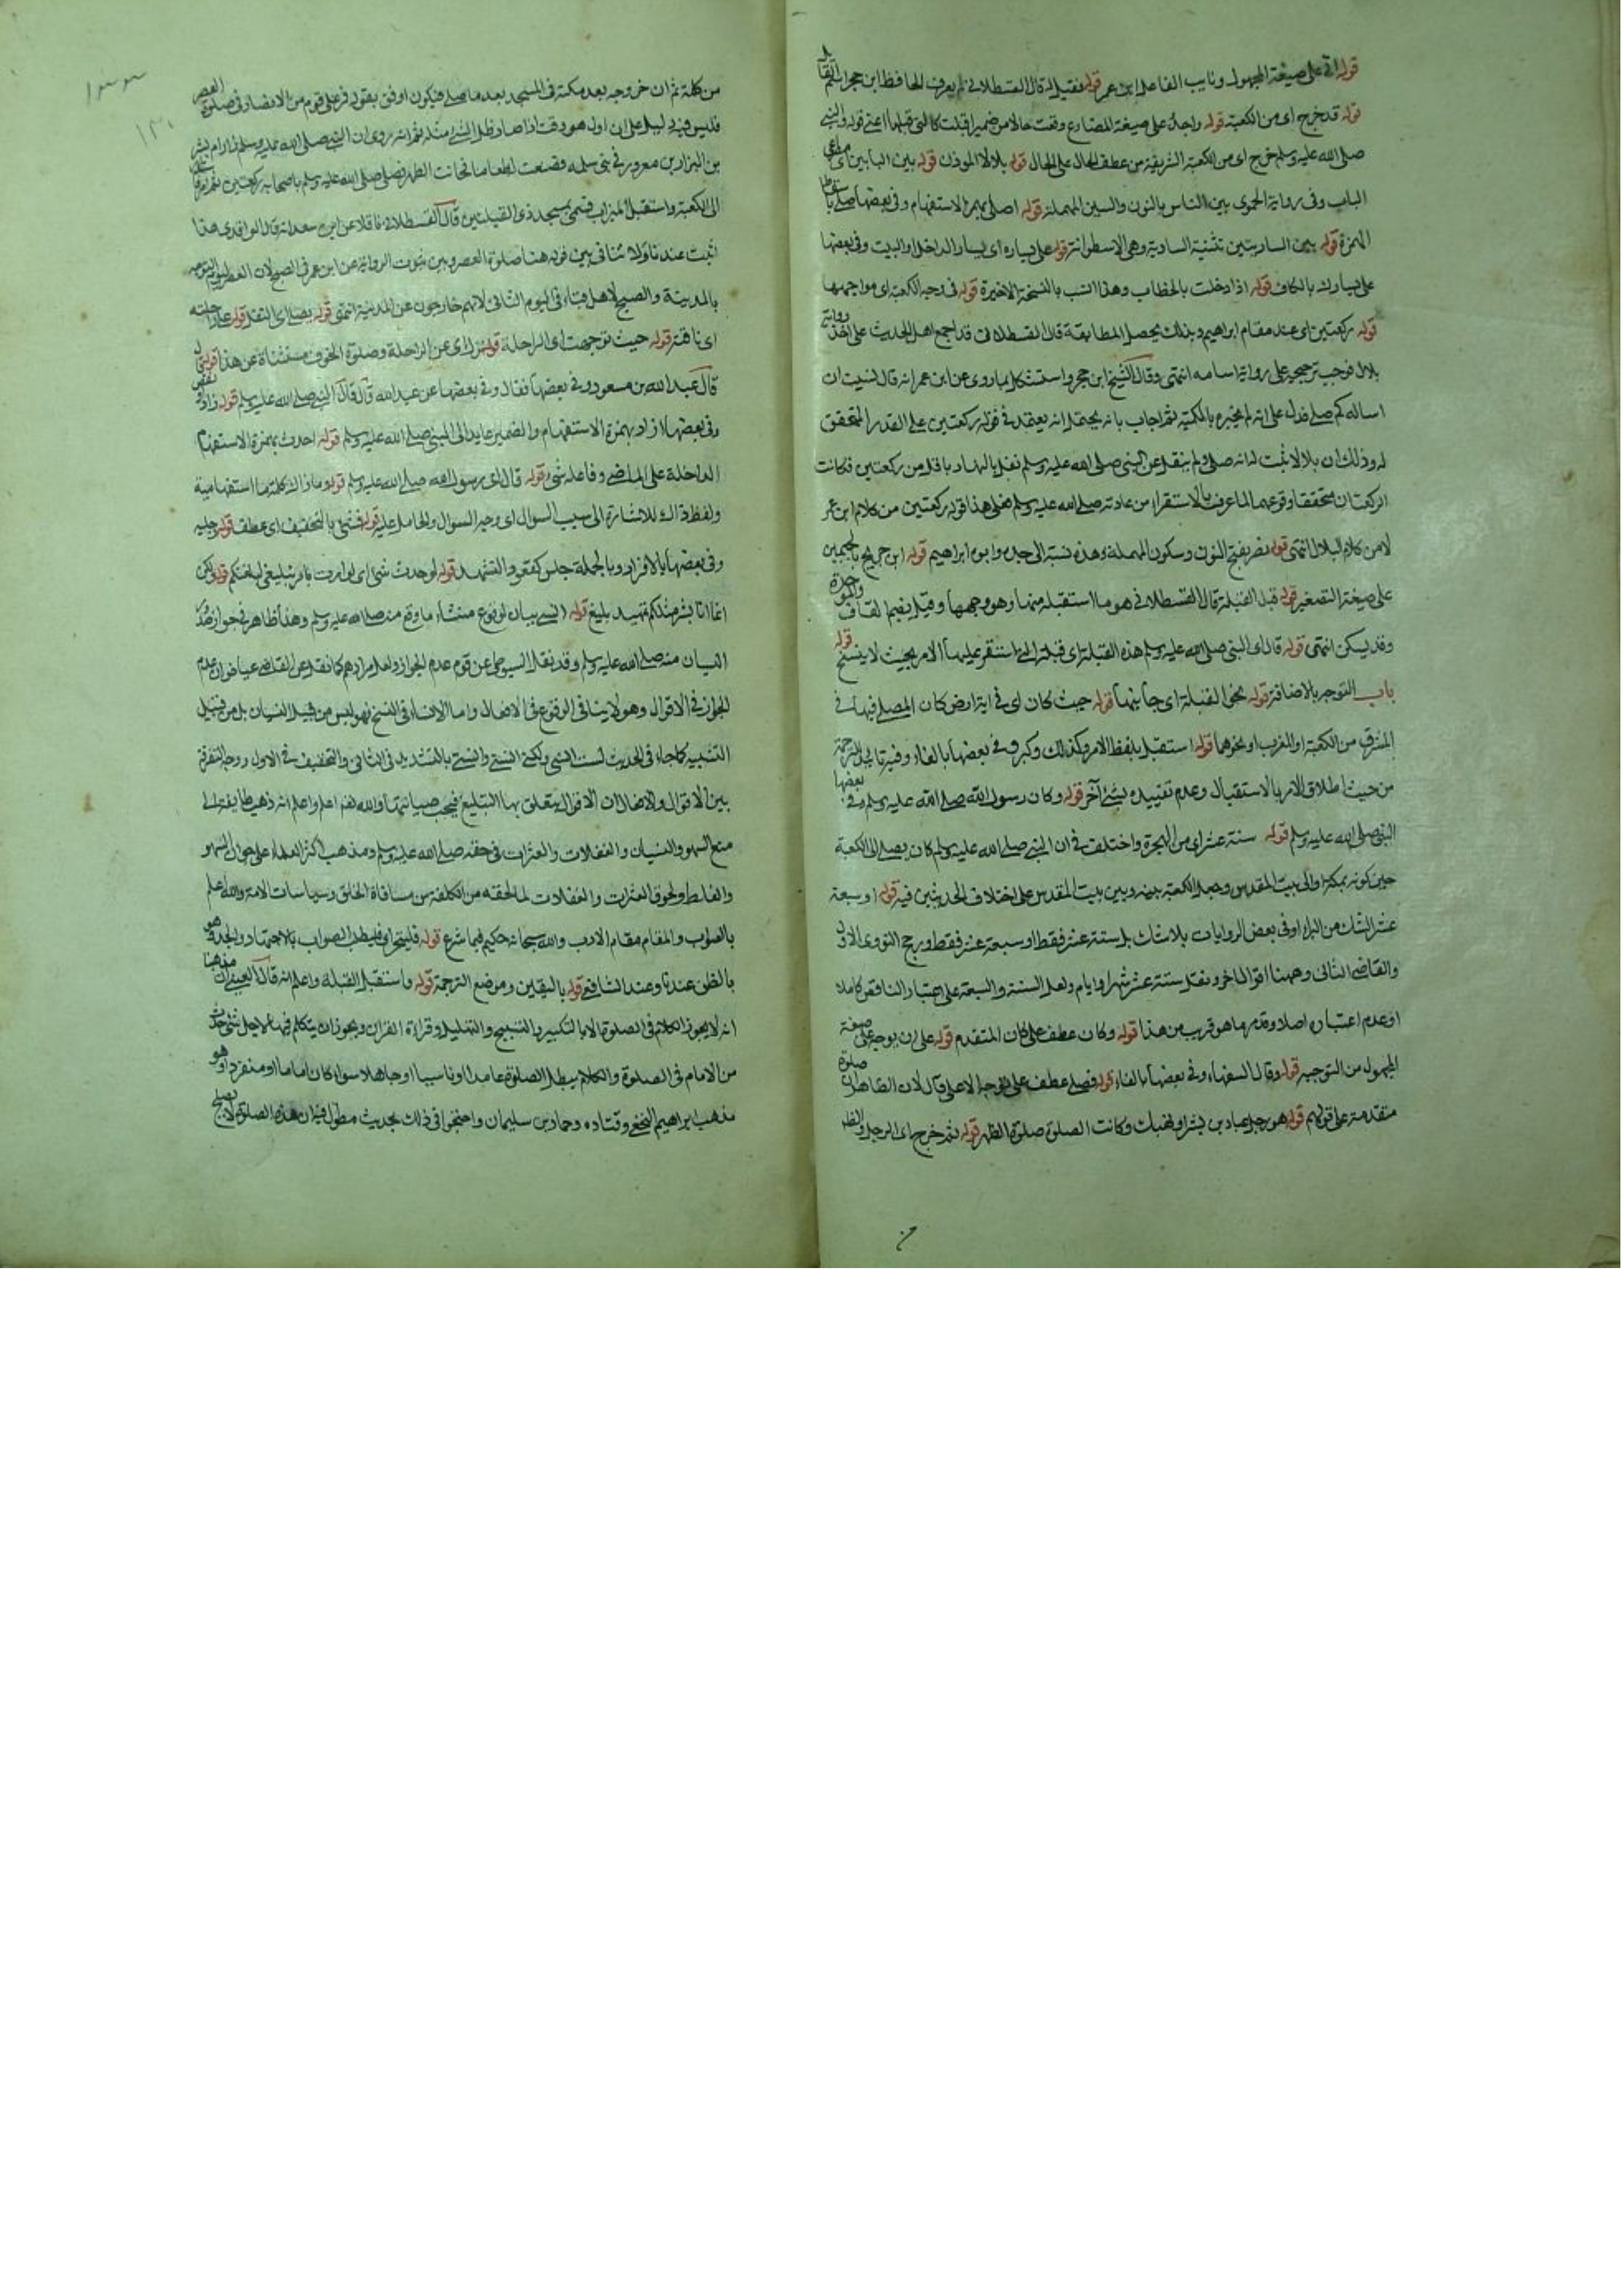 قوله اتى على صيغة المجهول ونايب الفاعل ابن عمر قوله فقيل له قال القسطلاني لم يعرف الحافظ ابن حجر اسم القائل
قوله قد خرج اى من الكعبة قوله واجد على صيغة المضارع وقعت حالا من ضمير اقبلت كالتى قبلها اعنى قوله والنبي
صلى الله عليه وسلم خرج اى من الكعبة الشريفة من عطف الحال على الحال قوله بلالا الموذن قوله بين البابين اى مصراعى
الباب وفى رواية الحموى بين الناس بالنون والسين المهملة قوله اصلى بهمزة الاستفهام وفى بعضها صلى باسقاط
الهمزة قوله بين الساريتين تثنية السارية وهى الاسطوانة قوله على يساره اى يسار الداخل او البيت وفى بعضها
على يسارك بالكاف قوله اذا دخلت بالخطاب وهذا انسب بالنسخة الاخيرة قوله فى وجه الكعبة اى مواجهها
قوله ركعتين اى عند مقام ابراهيم وبذلك يحصل المطابقة قال القسطلانى قد اجمع اهل الحديث على اخذ رواية
بلال فوجب ترجيحه على رواية اسامه انتهى وقال الشيخ ابن حجر واستشكل بما روى عن ابن عمر انه قال نسيت ان
اساله كم صلى فدل على انه لم يخبره بالكمية ثم اجاب بانه يحتمل انه يعتمد فى قوله ركعتين على القدر المتحقق
له وذلك ان بلالا اثبت له انه صلى ولم ينقل عن النبى صلى الله عليه وسلم نفل بالنهار باقل من ركعتين فكانت
الركعتان متحققا وقوعهما لما عرف بالاستقراء من عادته صلى الله عليه وسلم فعلى هذا قوله ركعتين من كلام ابن عمر
لا من كلام البلال انتهى قوله نصر بفتح النون وسكون المهملة وهذه نسبة الى جده وابوه ابراهيم قوله ابن جريج بالجيمين
على صيغة التصغير قوله قبل القبلة قال القسطلانى هو ما استقبله منها وهو وجهها وقبل بضم القاف والموحدة
وقد يسكن انتهى قوله قال اى النبى صلى الله عليه وسلم هذه القبلة اى قبلة التى استقر عليها الامر بحيث لا ينسخ قوله
باب التوجه بالاضافة قوله نحو القبلة اى جانبها قوله حيث كان اى فى اية ارض كان المصلى فيها فى
المشرق من الكعبة او المغرب او نحوهما قوله استقبل بلفظ الامر وكذلك وكبر وفى بعضها بالفاء وفيه تاييد للترجمة
من حيث اطلاق الامر بالاستقبال وعدم تقييده بشئ آخر قوله وكان رسول الله صلى الله عليه وسلم وفى بعضها
النبى صلى الله عليه وسلم قوله ستة عشر اى من الهجرة واختلف فى ان النبى صلى الله عليه وسلم كان يصلى الى الكعبة
حين كونه بمكة او الى بيت المقدس وجعل الكعبة بينه وبين بيت المقدس على اختلاف الحديثين فيه قوله او سبعة
عشر الشك من البراء وفى بعض الروايات بلاشك بل ستة عشر فقط او سبعة عشر فقط ورجح النووى الاول
والقاضى الثانى وههنا اقوال اخر ونقل ستة عشر شهرا وايام ولعل الستة والسبعة على اعتبار الناقص كاملا
او عدم اعتباره اصلا وقد مر ما هو قريب من هذا قوله وكان عطف على كان المتقدم قوله على ان يوجه على صيغة
المجهول من التوجيه قوله وقال السفهاء وفى بعضها بالفاء قوله فصلى عطف على وجه لا على قال لان الظاهر ان صلوة
متقدمة على قولهم قوله هو رجل عباد بن بشر او نهيك وكانت الصلوة صلوة الظهر قوله ثم خرج اى الرجل
من كلمة ثم ان خروجه بعد مكثه فى المسجد بعد ما صلى فيكون اوفق بقوله فمر على قوم من الانصار فى صلوة العصر
فليس فيه دليل على ان اول هو وقت اذا صار ظل الشئ مثله ثم انه روى ان النبى صلى الله عليه وسلم
بن البراء بن معرور فى بنى سلمه فصنعت لطعاما فحانت الظهر فصلى صلى الله عليه وسلم باصحابه ركعتين ثم
الى الكعبة واستقبل الميزاب فسمى مسجد ذى القبلتين قال القسطلانى ناقلا عن ابن سعد انه قال الواقدى هذا
اثبت عندنا ولا تنافى بين قوله ههنا صلوة العصر وبين ثبوت الرواية عن ابن عمر فى الصبح لان العصر ليوم التوجه
بالمدينة والصبح لاهل قباء فى اليوم الثانى لانهم خارجون عن المدينة انتهى قوله يصلى اى النفل قوله على راحلته
اى ناقته قوله حيث توجهت اى الراحلة قوله نزل اى عن الراحلة وصلوة الخوف مستثناة عن هذا قوله قال
قال عبد الله بن مسعود وفى بعضها فقال وفى بعضها عن عبد الله قال قال النبى صلى الله عليه وسلم قوله زاد او نقص
وفى بعضها ازاد بهمزة الاستفهام والضمير عايد الى النبى صلى الله عليه وسلم قوله احدث بهمزة الاستفهام
الداخلة على الماضى وفاعله شئ قوله قال اى رسول الله صلى الله عليه وسلم قوله وما ذاك كلمة ما استفهامية
ولفظ ذاك للاشارة الى سبب السوال اى وجه السوال والحامل عليه قوله فثنى بالتخفيف اى عطف قوله رجليه
وفى بعضها بالافراد وبالجملة جلس كقعود التشهد قوله لو حدث شئ اى لو امرت بامر بتبليغى لبلغتكم قوله ولكن
انما انا بشر مثلكم تمهيد بليغ قوله انسى بيان لوقوع منشاء ما وقع منه صلى الله عليه وسلم وهذا ظاهر فى جواز صدور
النسيان منه صلى الله عليه وسلم وقد نقل السيوطى عن قوم عدم الجواز ولعل مرادهم كما نقل عن القاضى عياض ان عدم
الجواز فى الاقوال وهو لا ينافى الوقوع فى الافعال واما الانساء فى النسخ فهو ليس من قبيل النسيان بل من قبيل
التنسية كما جاء فى الحديث لست انسى ولكنى انسى وانسى بالتشديد فى الثانى والتخفيف فى الاول ووجه التفرقة
بين الاقوال والافعال ان الاقوال يتعلق بها التبليغ فيجب صيانتها والله اعلم واعلم انه ذهب طايفة الى
منع السهو والنسيان والغفلات والعثرات فى حقه صلى الله عليه وسلم ومذهب اكثر العلماء على جواز السهو
والغلط ولحوق العثرات والغفلات لما لحقه من الكلفة من مساقاة الخلق وسياسات الامة والله اعلم
بالصواب والمقام مقام الادب والله سبحانه حكيم فيما شرع قوله فليتحر اى فليطلب الصواب بالاجتهاد والجد وهو
بالظن عندنا وعند الشافعى قوله باليقين وموضع الترجمة قوله واستقبل القبلة واعلم انه قال العينى ان مذهبنا
انه لا يجوز الكلام فى الصلوة الا بالتكبير والتسبيح والتهليل وقراءة القران ويجوز ان يتكلم فيها لاجل شئ حدث
من الامام فى الصلوة والكلام يبطل الصلوة عامدا او ناسيا او جاهلا سواء كان اماما او منفردا وهو
مذهب ابراهيم النخعى وقتاده وحماد بن سليمان واحتجوا فى ذلك بحديث مطول فيه ان هذه الصلوة لا يصلح